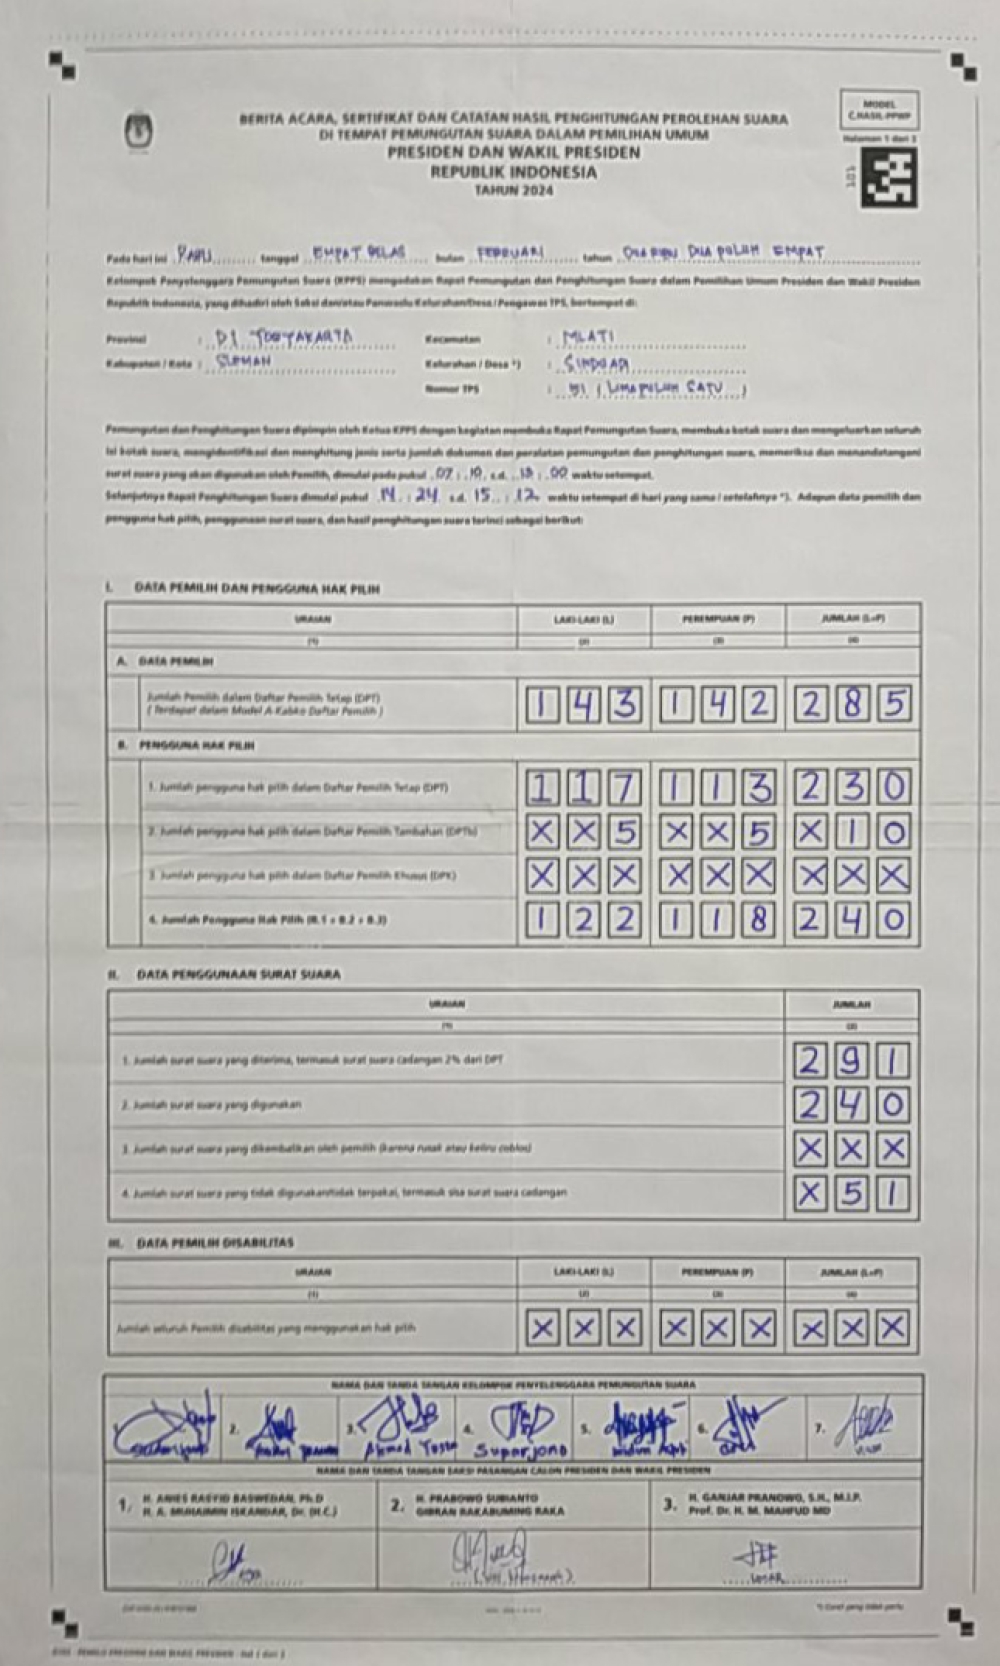 MODEL
C.HASIL-PPWP
Halaman 1 dari 3
101
BERITA ACARA, SERTIFIKAT DAN CATATAN HASIL PENGHITUNGAN PEROLEHAN SUARA
DI TEMPAT PEMUNGUTAN SUARA DALAM PEMILIHAN UMUM
PRESIDEN DAN WAKIL PRESIDEN
REPUBLIK INDONESIA
TAHUN 2024
Pada hari ini RABU tanggal EMPAT BELAS bulan FEBRUARI tahun DUA RIBU DUA PULUH EMPAT
Kelompok Penyelenggara Pemungutan Suara (KPPS) mengadakan Rapat Pemungutan dan Penghitungan Suara dalam Pemilihan Umum Presiden dan Wakil Presiden
Republik Indonesia, yang dihadiri oleh Saksi dan/atau Panwaslu Kelurahan/Desa/Pengawas TPS, bertempat di:
Provinsi : DI YOGYAKARTA Kecamatan : MLATI
Kabupaten / Kota : SLEMAN Kelurahan / Desa *) : SINDUADI
Nomor TPS : 51 ( LIMA PULUH SATU )
Pemungutan dan Penghitungan Suara dipimpin oleh Ketua KPPS dengan kegiatan membuka Rapat Pemungutan Suara, membuka kotak suara dan mengeluarkan seluruh
isi kotak suara, mengidentifikasi dan menghitung jenis serta jumlah dokumen dan peralatan pemungutan dan penghitungan suara, memeriksa dan menandatangani
surat suara yang akan digunakan oleh Pemilih, dimulai pada pukul 07 : 10 s.d. 13 : 00 waktu setempat.
Selanjutnya Rapat Penghitungan Suara dimulai pukul 14 : 24 s.d. 15 : 12 waktu setempat di hari yang sama / setelahnya *). Adapun data pemilih dan
pengguna hak pilih, penggunaan surat suara, dan hasil penghitungan suara terinci sebagai berikut:
I. DATA PEMILIH DAN PENGGUNA HAK PILIH
URAIAN LAKI-LAKI (L) PEREMPUAN (P) JUMLAH (L+P)
(1) (2) (3) (4)
A. DATA PEMILIH
Jumlah Pemilih dalam Daftar Pemilih Tetap (DPT)
( Terdapat dalam Model A-Kabko Daftar Pemilih ) 1 4 3 1 4 2 2 8 5
B. PENGGUNA HAK PILIH
1. Jumlah pengguna hak pilih dalam Daftar Pemilih Tetap (DPT) 1 1 7 1 1 3 2 3 0
2. Jumlah pengguna hak pilih dalam Daftar Pemilih Tambahan (DPTb) X X 5 X X 5 X 1 0
3. Jumlah pengguna hak pilih dalam Daftar Pemilih Khusus (DPK) X X X X X X X X X
4. Jumlah Pengguna Hak Pilih (B.1 + B.2 + B.3) 1 2 2 1 1 8 2 4 0
II. DATA PENGGUNAAN SURAT SUARA
URAIAN JUMLAH
(1) (2)
1. Jumlah surat suara yang diterima, termasuk surat suara cadangan 2% dari DPT 2 9 1
2. Jumlah surat suara yang digunakan 2 4 0
3. Jumlah surat suara yang dikembalikan oleh pemilih (karena rusak atau keliru coblos) X X X
4. Jumlah surat suara yang tidak digunakan/tidak terpakai, termasuk sisa surat suara cadangan X 5 1
III. DATA PEMILIH DISABILITAS
URAIAN LAKI-LAKI (L) PEREMPUAN (P) JUMLAH (L+P)
(1) (2) (3) (4)
Jumlah seluruh Pemilih disabilitas yang menggunakan hak pilih X X X X X X X X X
NAMA DAN TANDA TANGAN KELOMPOK PENYELENGGARA PEMUNGUTAN SUARA
2. 3. 4. 5. 6. 7.
Suparjono
NAMA DAN TANDA TANGAN SAKSI PASANGAN CALON PRESIDEN DAN WAKIL PRESIDEN
1. H. ANIES RASYID BASWEDAN, Ph.D
H. A. MUHAIMIN ISKANDAR, Dr. (H.C.)
2. H. PRABOWO SUBIANTO
GIBRAN RAKABUMING RAKA
3. H. GANJAR PRANOWO, S.H., M.I.P.
Prof. Dr. H. M. MAHFUD MD
*) Coret yang tidak perlu